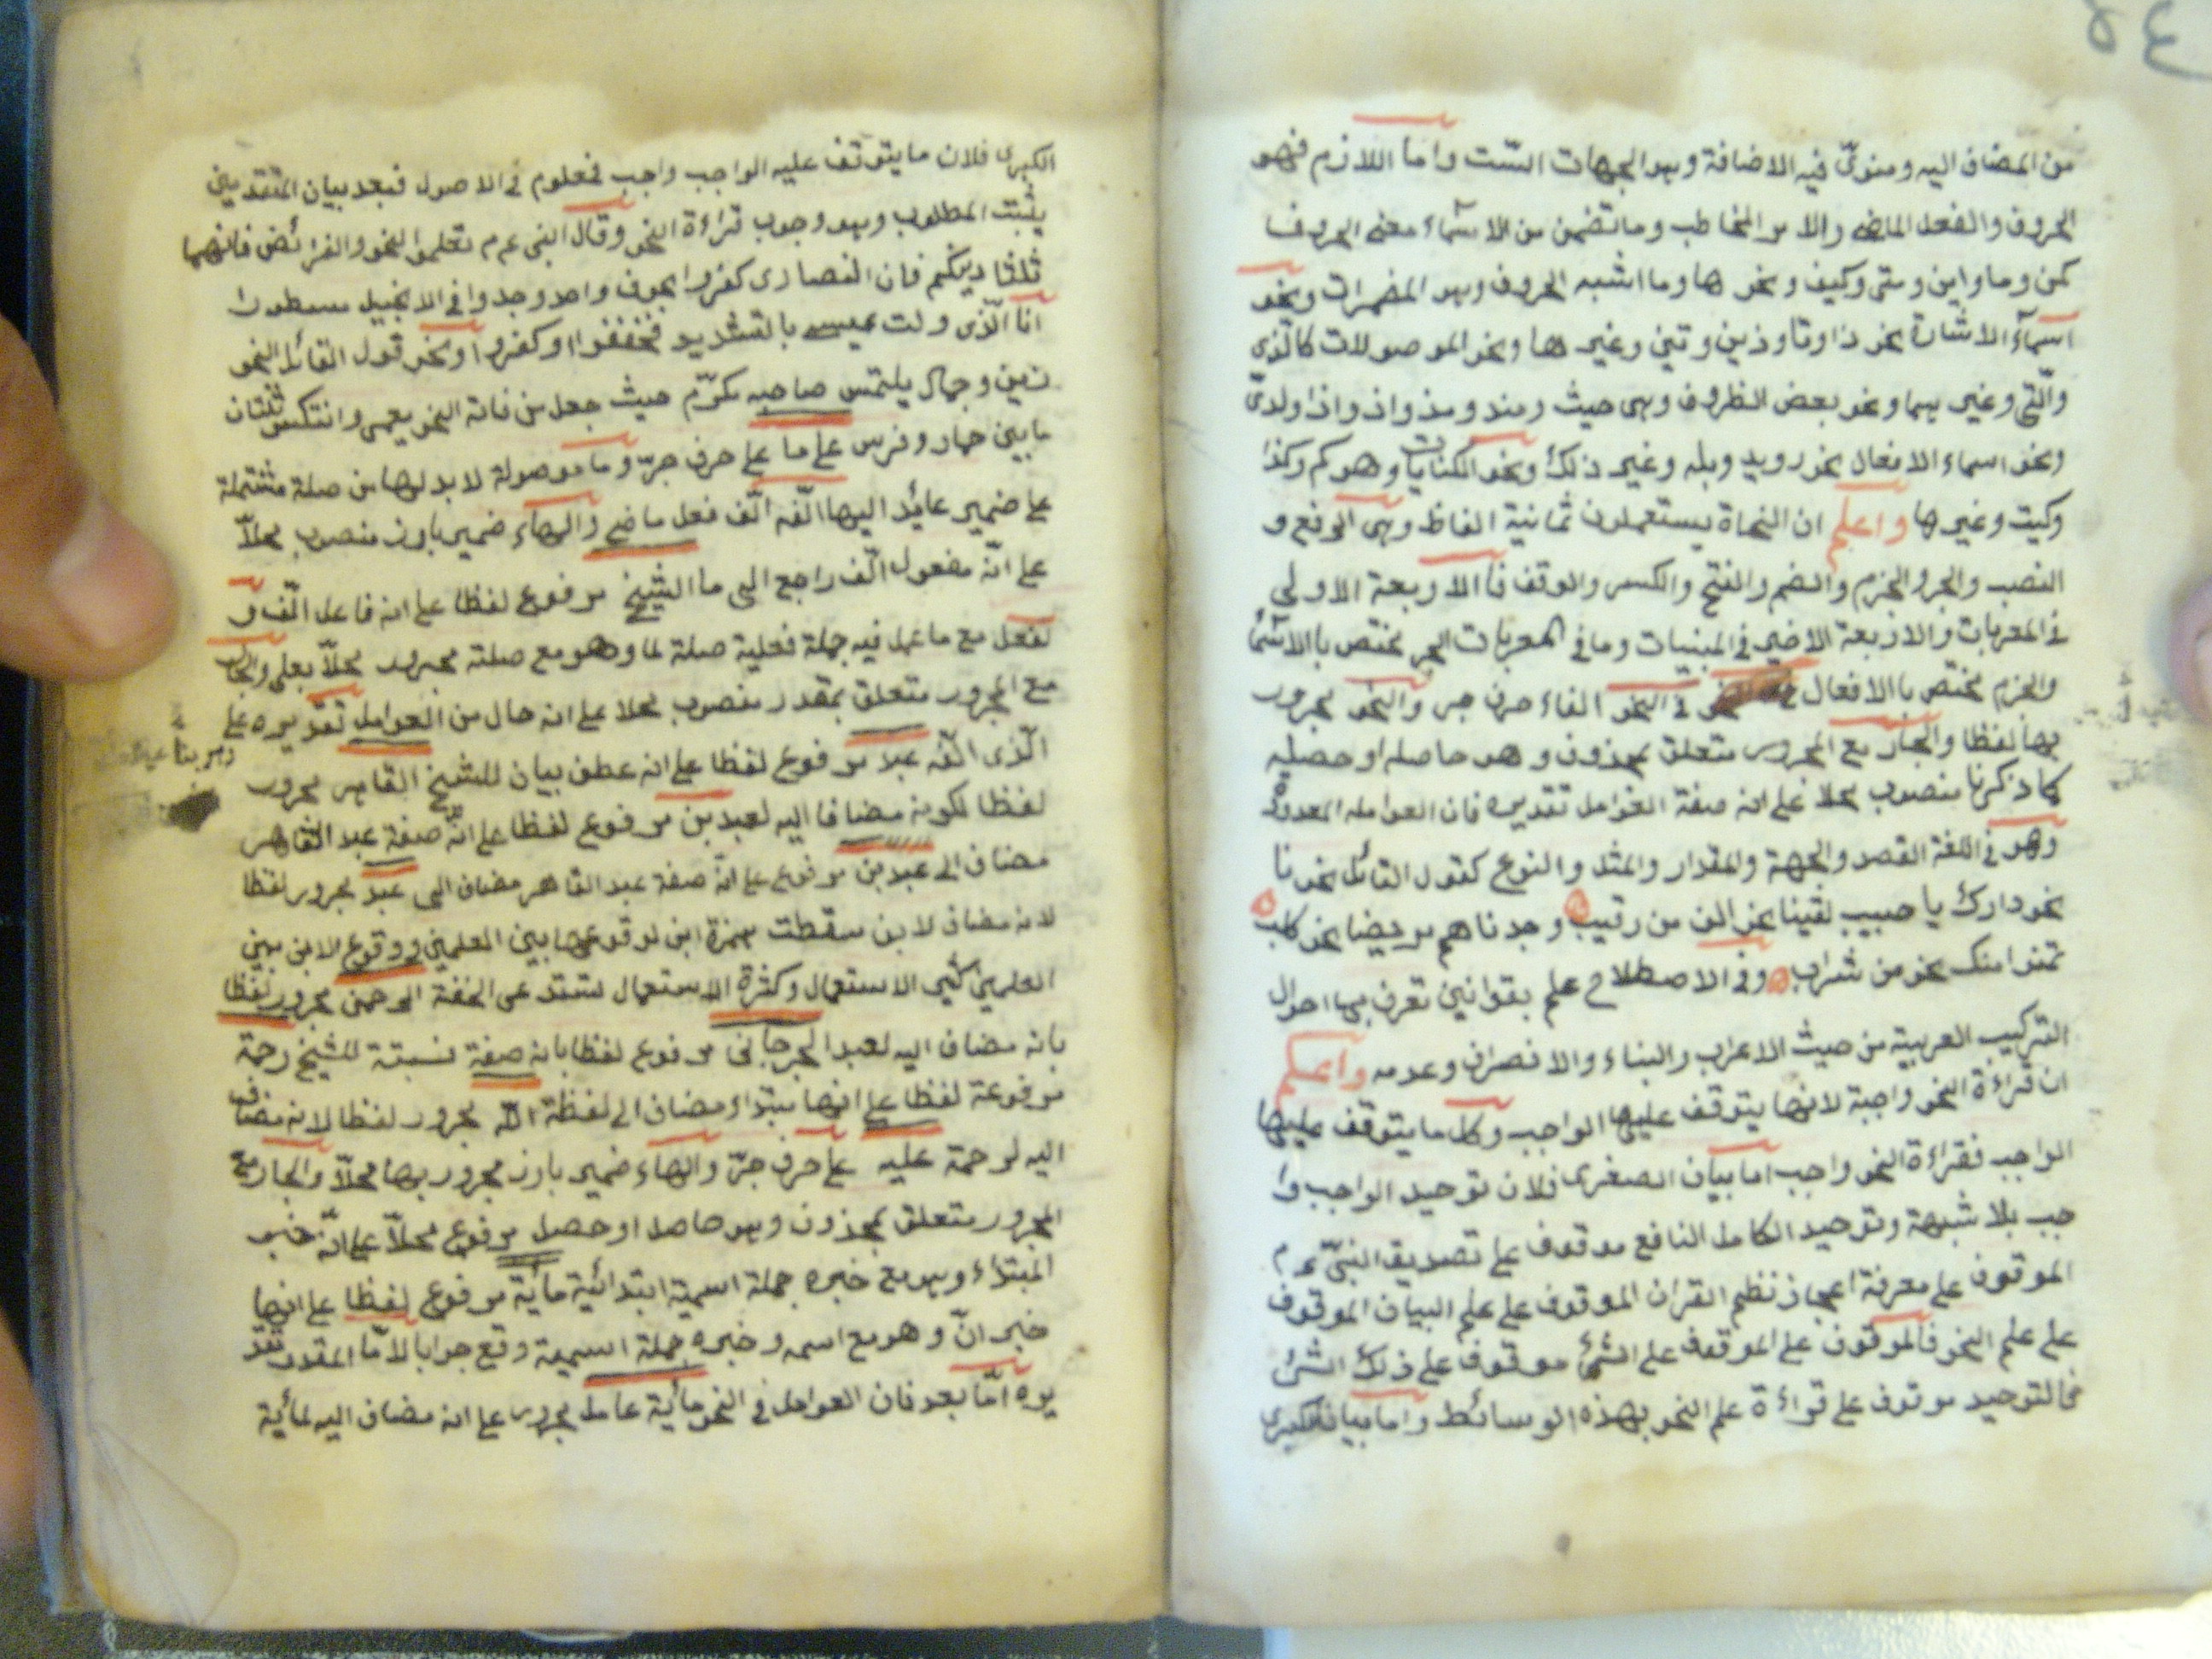 ٥٤
من المضاف اليه ومنوىّ فيه الاضافة وهو الجهات الستّ واما اللازم فهو
الحروف والفعل الماضى والامر المخاطب وما تضمن من الاسماء معنى الحروف
كمن وما واين ومتى وكيف ونحوها وما اشبه الحروف وهو المضمرات ونحو
اسمآء الاشارة نحو ذا وتا وذين وتين وغيرها ونحو الموصولات كالّذى
والّتى وغيرهما ونحو بعض الظروف وهى حيث ومنذ ومذ واذ واذا ولدىّ
ونحو اسماء الافعال نحو رويد وبله وغير ذلك ونحو الكنايات وهو كم وكذا
وكيت وغيرها واعلم ان النحاة يستعملون ثمانية الفاظ وهى الرفع و
النصب والجر والجزم والضم والفتح والكسر والوقف فالاربعة الاولى
فى المعربات والاربعة الاخير فى المبنيات وما فى المعربات الجر مختص بالاسمآ
والجزم مختص بالافعال فى النحو الفاء حرف جر والنحو مجرور
بها لفظا والجار مع المجرور متعلق بمحذوف وهو حاصل او حصل
كما ذكرنا منصوب محلا على انه صفة العوامل تقديره فان العوامل المعدودة
وهو فى اللغة القصد والجهة والمقدار والمثل والنوع كقول القائل نحونا
نحو دارك يا حبيب لقينا نحو الف من رقيب وجدناهم مريضا نحو كلب
تمنوا منك نحو من شراب وفى الاصطلاح علم بقوانين تعرف بها احوال
التركيب العربية من حيث الاعراب والبناء والانصراف وعدمه واعلم
ان قراءة النحو واجبة لانها يتوقف عليها الواجب وكل ما يتوقف عليها
الواجب فقراءة النحو واجب اما بيان الصغرى فلان توحيد الواجب وا
جب بلا شبهة وتوحيد الكامل النافع موقوف على تصديق النبىّ عم
الموقوف على معرفة اعجاز نظم القران الموقوف على علم البيان الموقوف
على علم النحو فالموقوف على الموقوف على الشئ موقوف على ذلك الشئ
فالتوحيد موقوف على قراءة علم النحو بهذه الوسائط واما بيان الكبرى
الكبرى فلان ما يتوقف عليه الواجب واجب فمعلوم فى الاصول فبعد بيان المتقدمين
يثبت المطلوب وهو وجوب قراءة النحو وقال النبى عم تعلموا النحو والفرائض فانهما
ثلثا دينكم فان النصارى كفروا بحرف واحد وجدوا فى الانجيل مسطورا
انا الّذى ولت عيسى بالتشديد فخففوا وكفروا ونحو قول القائل النحو
زين وجمال يلتمس صاحبه مكرّم حيث جعل من فاته النحو يعمى وانتكس ثلثان
ما بين حمار وفرس على ما على حرف جرّ وما موصولة لا بد لها من صلة مشتملة
على ضمير عائد اليها الّفه الّف فعل ماضى والهاء ضمير بارز منصوب محلاّ
على انّه مفعول الّف راجع الى ما الشيخ مرفوع لفظا على انه فاعل الّف و
لفعل مع ما عمل فيه جملة فعلية صلة لما وهو مع صلته مجرور محلاّ بعلى والجار
مع المجرور متعلق بمقدر منصوب محلا على انه حال من العوامل تقديره على
الّذى الّفه عبد مرفوع لفظا على انه عطف بيان للشيخ القاهر مجرور
لفظا لكونه مضافا اليه لعبد بن مرفوع لفظا على انّه صفة عبد القاهر
مضاف الى عبد بن مرفوع على انّه صفة عبد القاهر مضاف الى عبد مجرور لفظا
لانه مضاف لابن سقطت همزة ابن لوقوعها بين العلمين ووقوع الابن بين
العلمين كثير الاستعمال وكثرة الاستعمال تستدعى الخفة الرحمن مجرور لفظا
بانه مضاف اليه لعبد الجرجانى مرفوع لفظا بانه صفة نسبتة للشيخ رحمة
مرفوعة لفظا على انها مبتداء مضاف الى لفظة الله مجرور لفظا لانه مضاف
اليه لرحمة عليه على حرف جرّ والهاء ضمير بارز مجرور بها محلاّ والجار مع
المجرور متعلق بمحذوف وهو حاصل او حصل مرفوع محلاّ على انّه خبر
المبتداء وهو مع خبره جملة اسمية ابتدائية مأية مرفوع لفظا على انها
خبر انّ وهو مع اسمه وخبره جملة اسمية وقع جوابا لامّا المقدر تقد
يره امّا بعد فان العوامل فى النحو مأية عامل مجرور على انه مضاف اليه لمأية